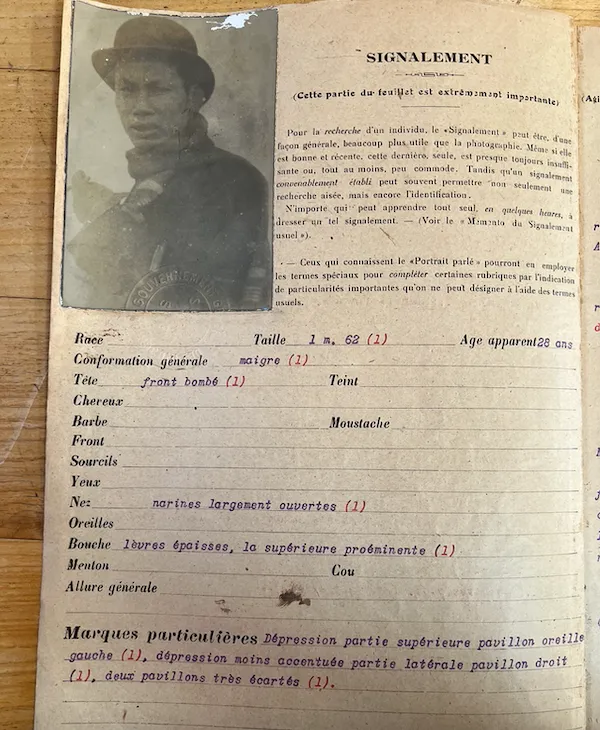 SIGNALEMENT
(Cette partie du feuillet est extrêmement importante)
Pour la recherche d'un individu, le «Signalement » peut être, d'une
façon générale, beaucoup plus utile que la photographie. Même si elle
est bonne et récente, cette dernière, seule, est presque toujours insuffi-
sante ou, tout au moins, peu commode. Tandis qu'un signalement
convenablement établi peut souvent permettre non seulement une
recherche aisée, mais encore l'identification.
N'importe qui peut apprendre tout seul, en quelques heures, à
dresser un tel signalement. — (Voir le » Memento du Signalement
usuel »).
— Ceux qui connaissent le «Portrait parlé » pourront en employer
les termes spéciaux pour compléter certaines rubriques par l'indication
de particularités importantes qu'on ne peut désigner à l'aide des termes
usuels.
Race Taille 1 m. 62 (1) Age apparent 28 ans
Conformation générale maigre (1)
Tête front bombé (1) Teint
Cheveux
Barbe Moustache
Front
Sourcils
Yeux
Nez narines largement ouvertes (1)
Oreilles
Bouche lèvres épaisses, la supérieure proéminente (1)
Menton Cou
Allure générale
Marques particulières Dépression partie supérieure pavillon oreille
gauche (1), dépression moins accentuée partie latérale pavillon droit
(1), deux pavillons très écartés (1).